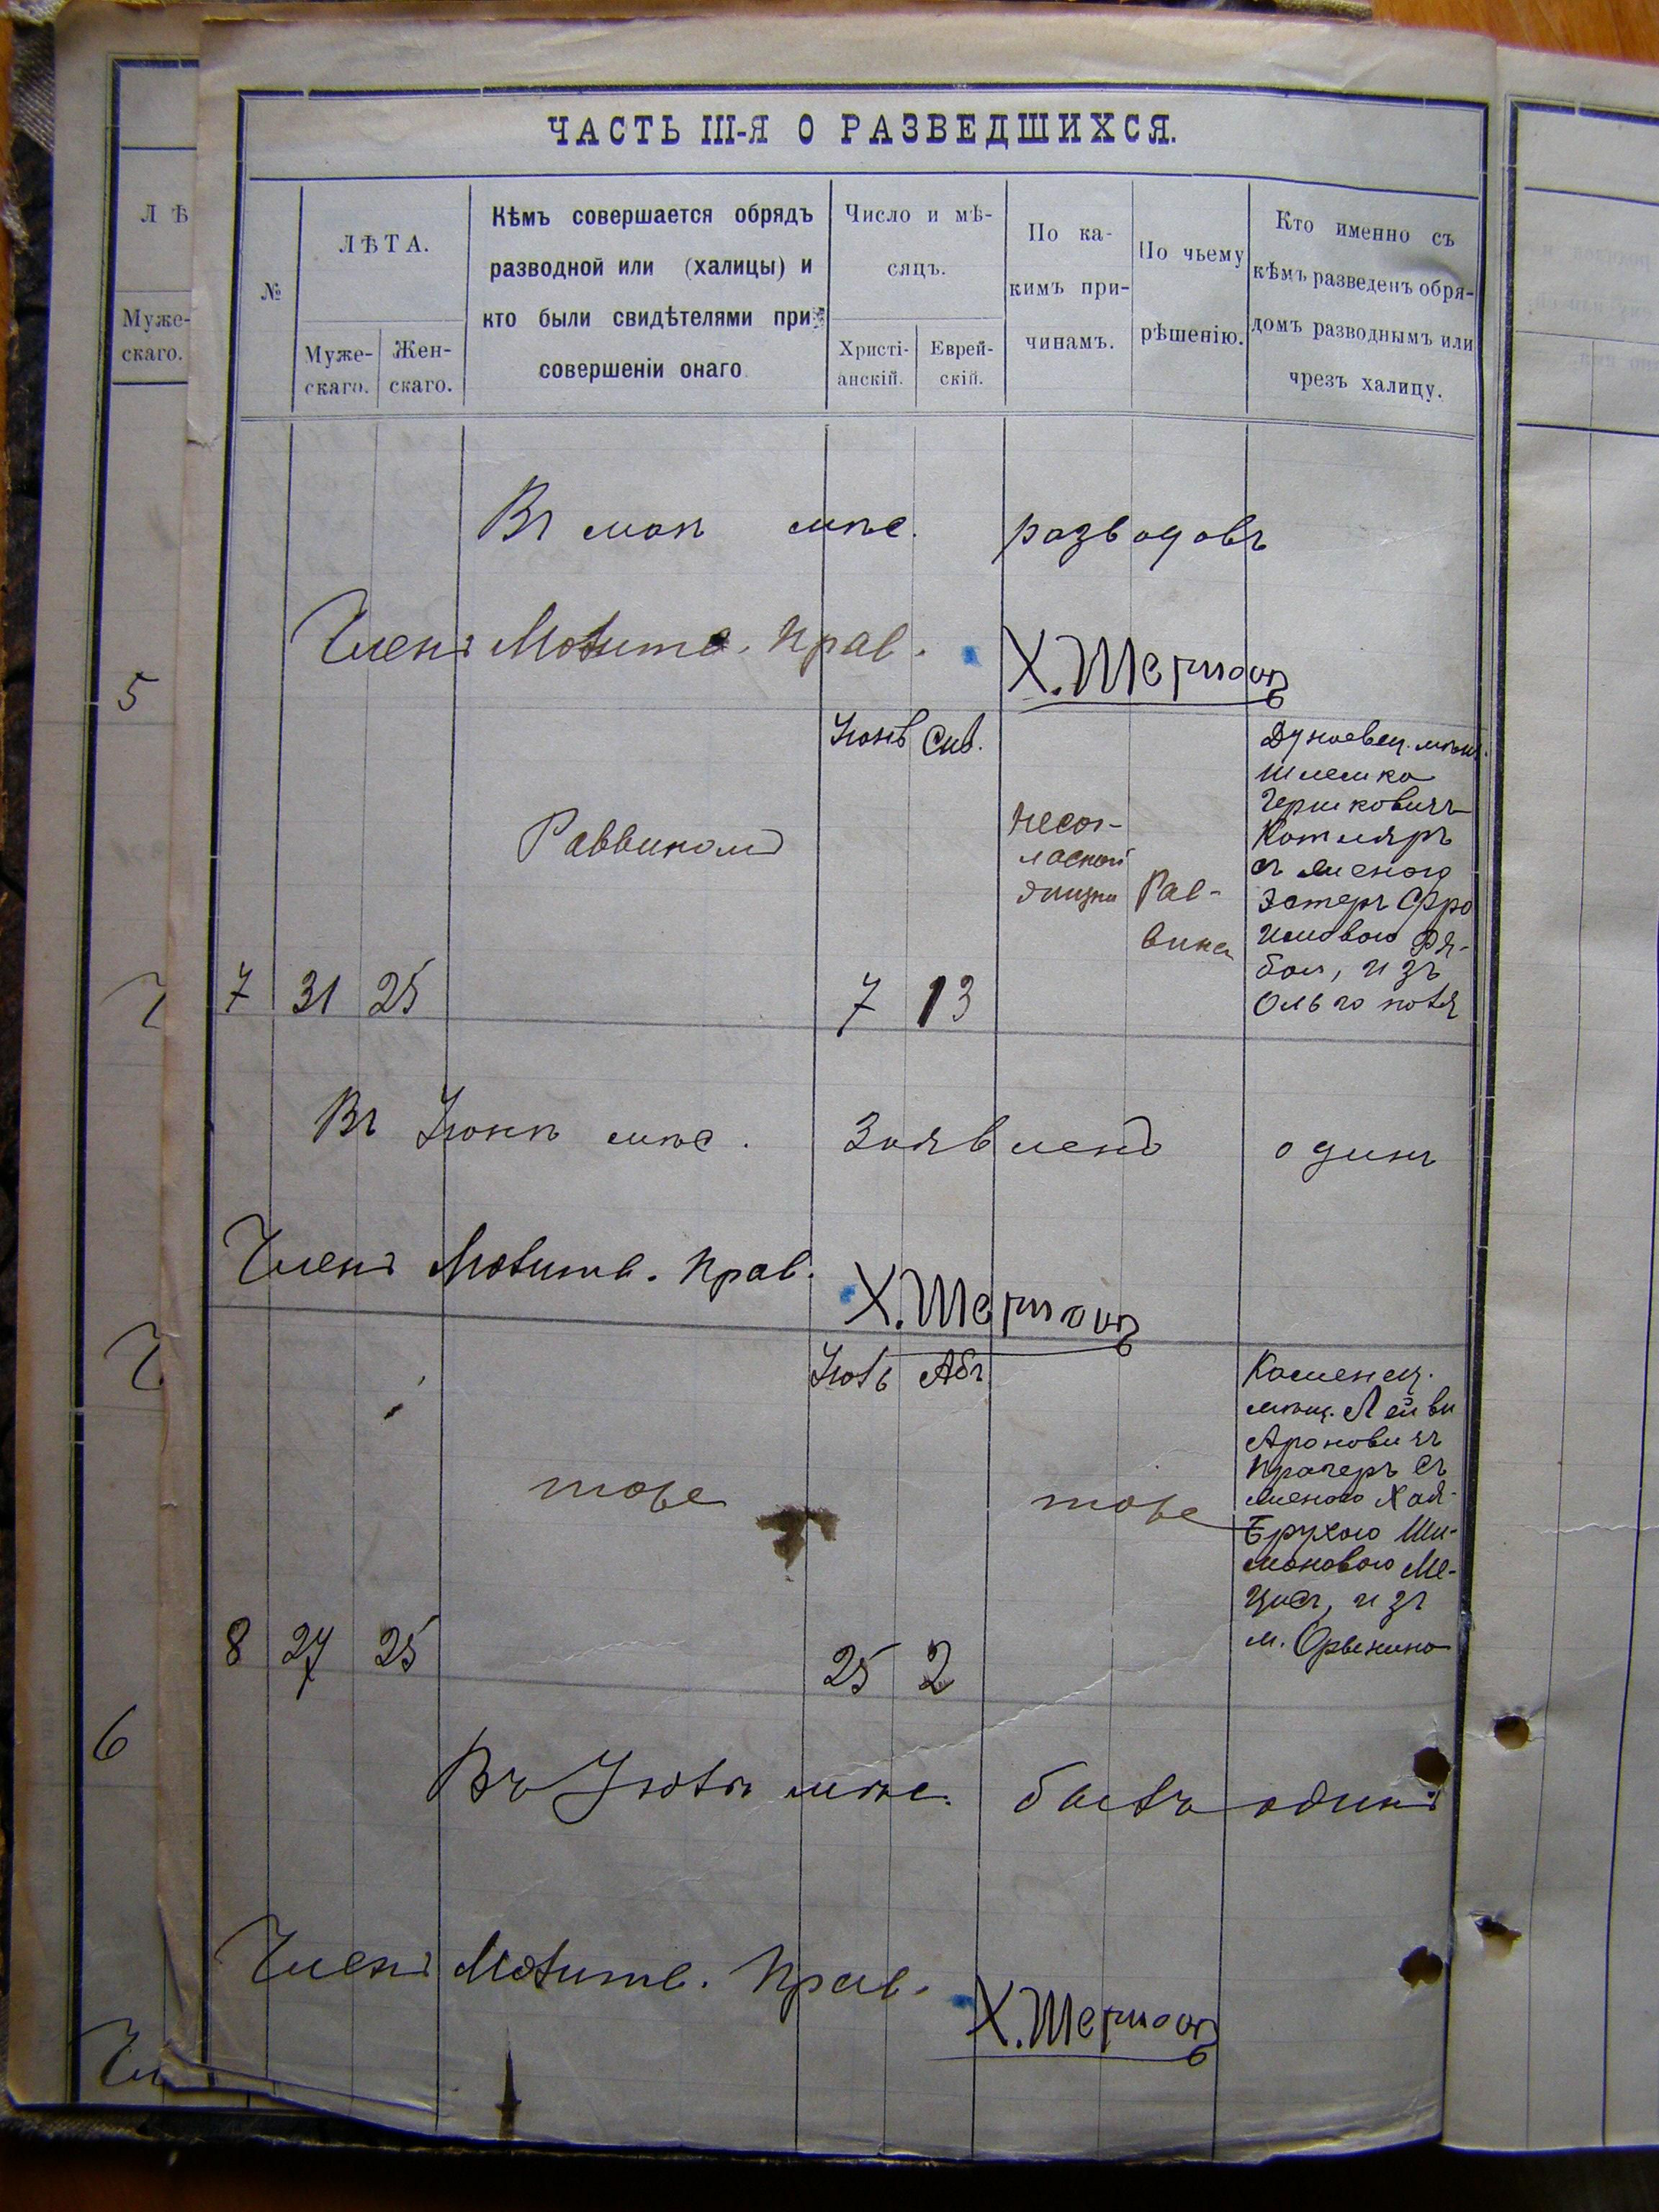 ЧАСТЬ III-Я О РАЗВЕДШИХСЯ.
№
ЛѢТА.
Муже-
скаго.
Жен-
скаго.
Кѣмъ совершается обрядъ
разводной или (халицы) и
кто были свидѣтелями при
совершеніи онаго
Число и мѣ-
сяцъ.
Христі-
анскій.
Еврей-
скій.
По ка-
кимъ при-
чинамъ.
По чьему
рѣшенію.
Кто именно съ
кѣмъ разведенъ обря-
домъ разводнымъ или
чрезъ халицу.
Въ маѣ мѣс. разводовъ
Членъ Молитв. Прав.
7
31
25
Раввиномъ
Іюнь
7
Сив.
13
несог-
ласной
жизни
Рав-
вина
Дунаевец. мѣщ.
Шлемка
Гершковичъ
Котляръ
съ женою
Эстеръ Фро
имовою Ря-
бой, изъ
Ольгополя
Въ Іюнѣ мѣс. Заявленъ одинъ
Членъ Молитв. Прав.
8
27
25
тоже
Іюль
25
Абъ
2
тоже
Каменец.
мѣщ. Лейви
Ароновичъ
Прагеръ съ
женою Хая-
Брухою Ши-
моновою
изъ
м.
Въ Іюлѣ мѣс. былъ одинъ
Членъ Молитв. Прав.
Л Ѣ
Муже-
скаго.
5
6